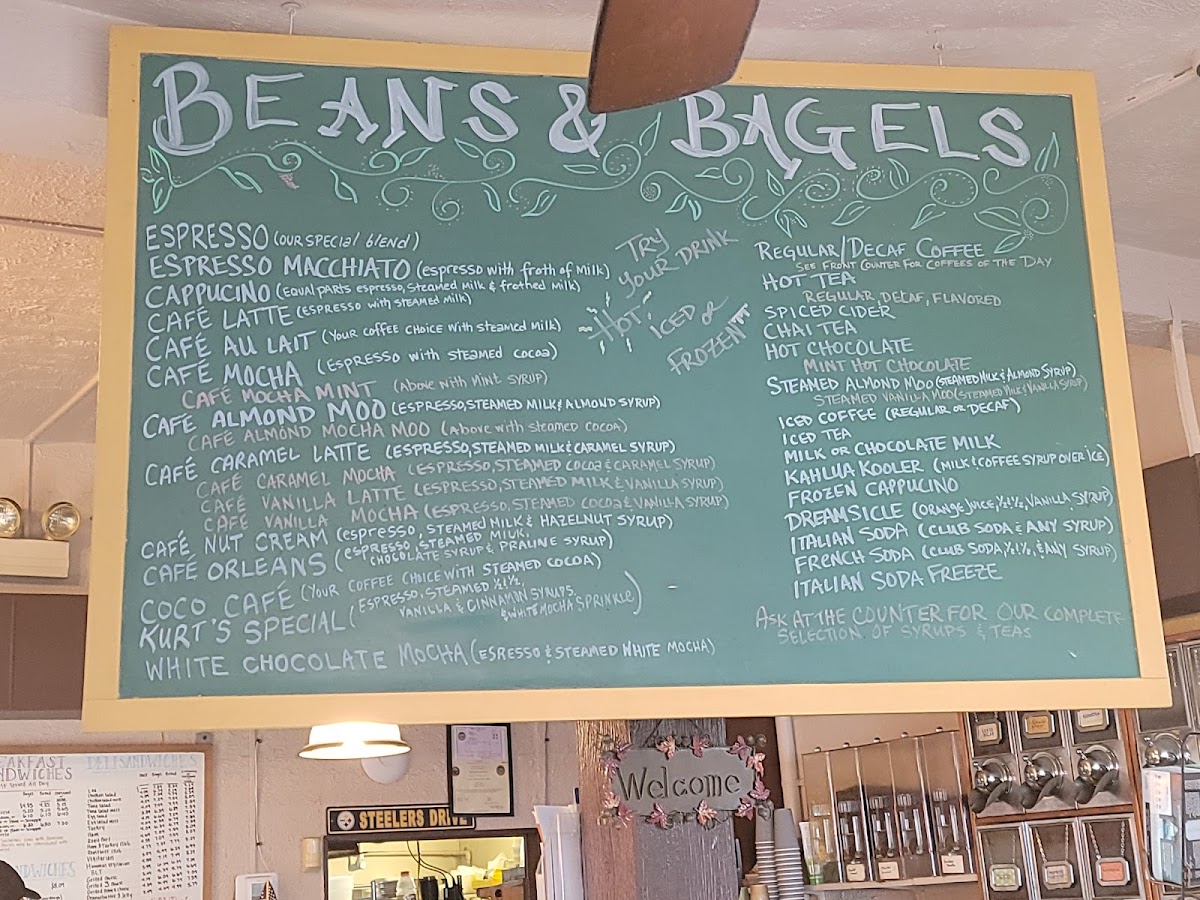 BEANS & BAGELS
ESPRESSO (OUR SPECIAL BLEND)
ESPRESSO MACCHIATO (ESPRESSO WITH FROTH OF MILK)
CAPPUCINO (EQUAL PARTS ESPRESSO, STEAMED MILK & FROTHED MILK)
CAFÉ LATTE (ESPRESSO WITH STEAMED MILK)
CAFÉ AU LAIT (YOUR COFFEE CHOICE WITH STEAMED MILK)
CAFÉ MOCHA (ESPRESSO WITH STEAMED COCOA)
CAFÉ MOCHA MINT (ABOVE WITH MINT SYRUP)
CAFÉ ALMOND MOO (ESPRESSO, STEAMED MILK & ALMOND SYRUP)
CAFÉ ALMOND MOCHA MOO (ABOVE WITH STEAMED COCOA)
CAFÉ CARAMEL LATTE (ESPRESSO, STEAMED MILK & CARAMEL SYRUP)
CAFÉ CARAMEL MOCHA (ESPRESSO, STEAMED COCOA & CARAMEL SYRUP)
CAFÉ VANILLA LATTE (ESPRESSO, STEAMED MILK & VANILLA SYRUP)
CAFÉ VANILLA MOCHA (ESPRESSO, STEAMED COCOA & VANILLA SYRUP)
CAFÉ NUT CREAM (ESPRESSO, STEAMED MILK & HAZELNUT SYRUP)
CAFÉ ORLEANS (ESPRESSO, STEAMED MILK,
CHOCOLATE SYRUP & PRALINE SYRUP)
COCO CAFÉ (YOUR COFFEE CHOICE WITH STEAMED COCOA)
KURT'S SPECIAL (ESPRESSO, STEAMED ½&½,
VANILLA & CINNAMIN SYRUPS
& WHITE MOCHA SPRINKLE)
WHITE CHOCOLATE MOCHA (ESRESSO & STEAMED WHITE MOCHA)
TRY
YOUR DRINK
HOT,
ICED OR
FROZEN
REGULAR/DECAF COFFEE
SEE FRONT COUNTER FOR COFFEES OF THE DAY
HOT TEA
REGULAR, DECAF, FLAVORED
SPICED CIDER
CHAI TEA
HOT CHOCOLATE
MINT HOT CHOCOLATE
STEAMED ALMOND MOO (STEAMED MILK & ALMOND SYRUP)
STEAMED VANILLA MOO (STEAMED MILK & VANILLA SYRUP)
ICED COFFEE (REGULAR OR DECAF)
ICED TEA
MILK OR CHOCOLATE MILK
KAHLUA KOOLER (MILK & COFFEE SYRUP OVER ICE)
FROZEN CAPPUCINO
DREAMSICLE (ORANGE JUICE, ½&½, VANILLA SYRUP)
ITALIAN SODA (CLUB SODA & ANY SYRUP)
FRENCH SODA (CLUB SODA, ½&½, & ANY SYRUP)
ITALIAN SODA FREEZE
ASK AT THE COUNTER FOR OUR COMPLETE
SELECTION OF SYRUPS & TEAS
Welcome
STEELERS DRIVE
DELI SANDWICHES
Turkey
Ham
Vegetarian
BLT